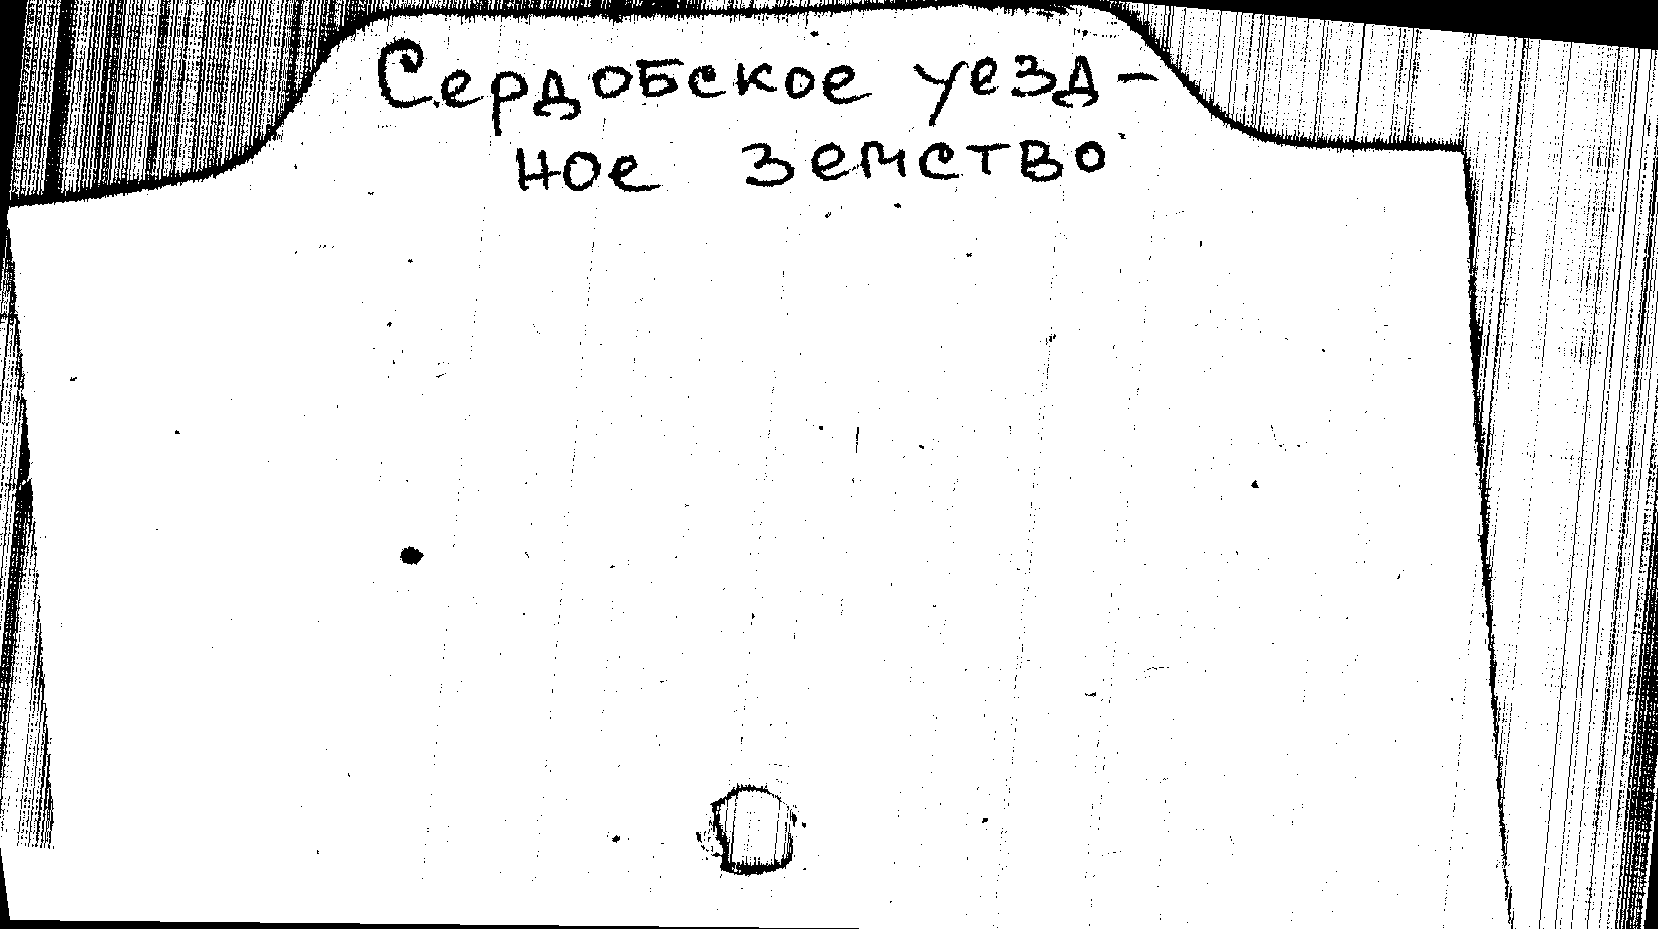 Сердобское уезд-
ное земство